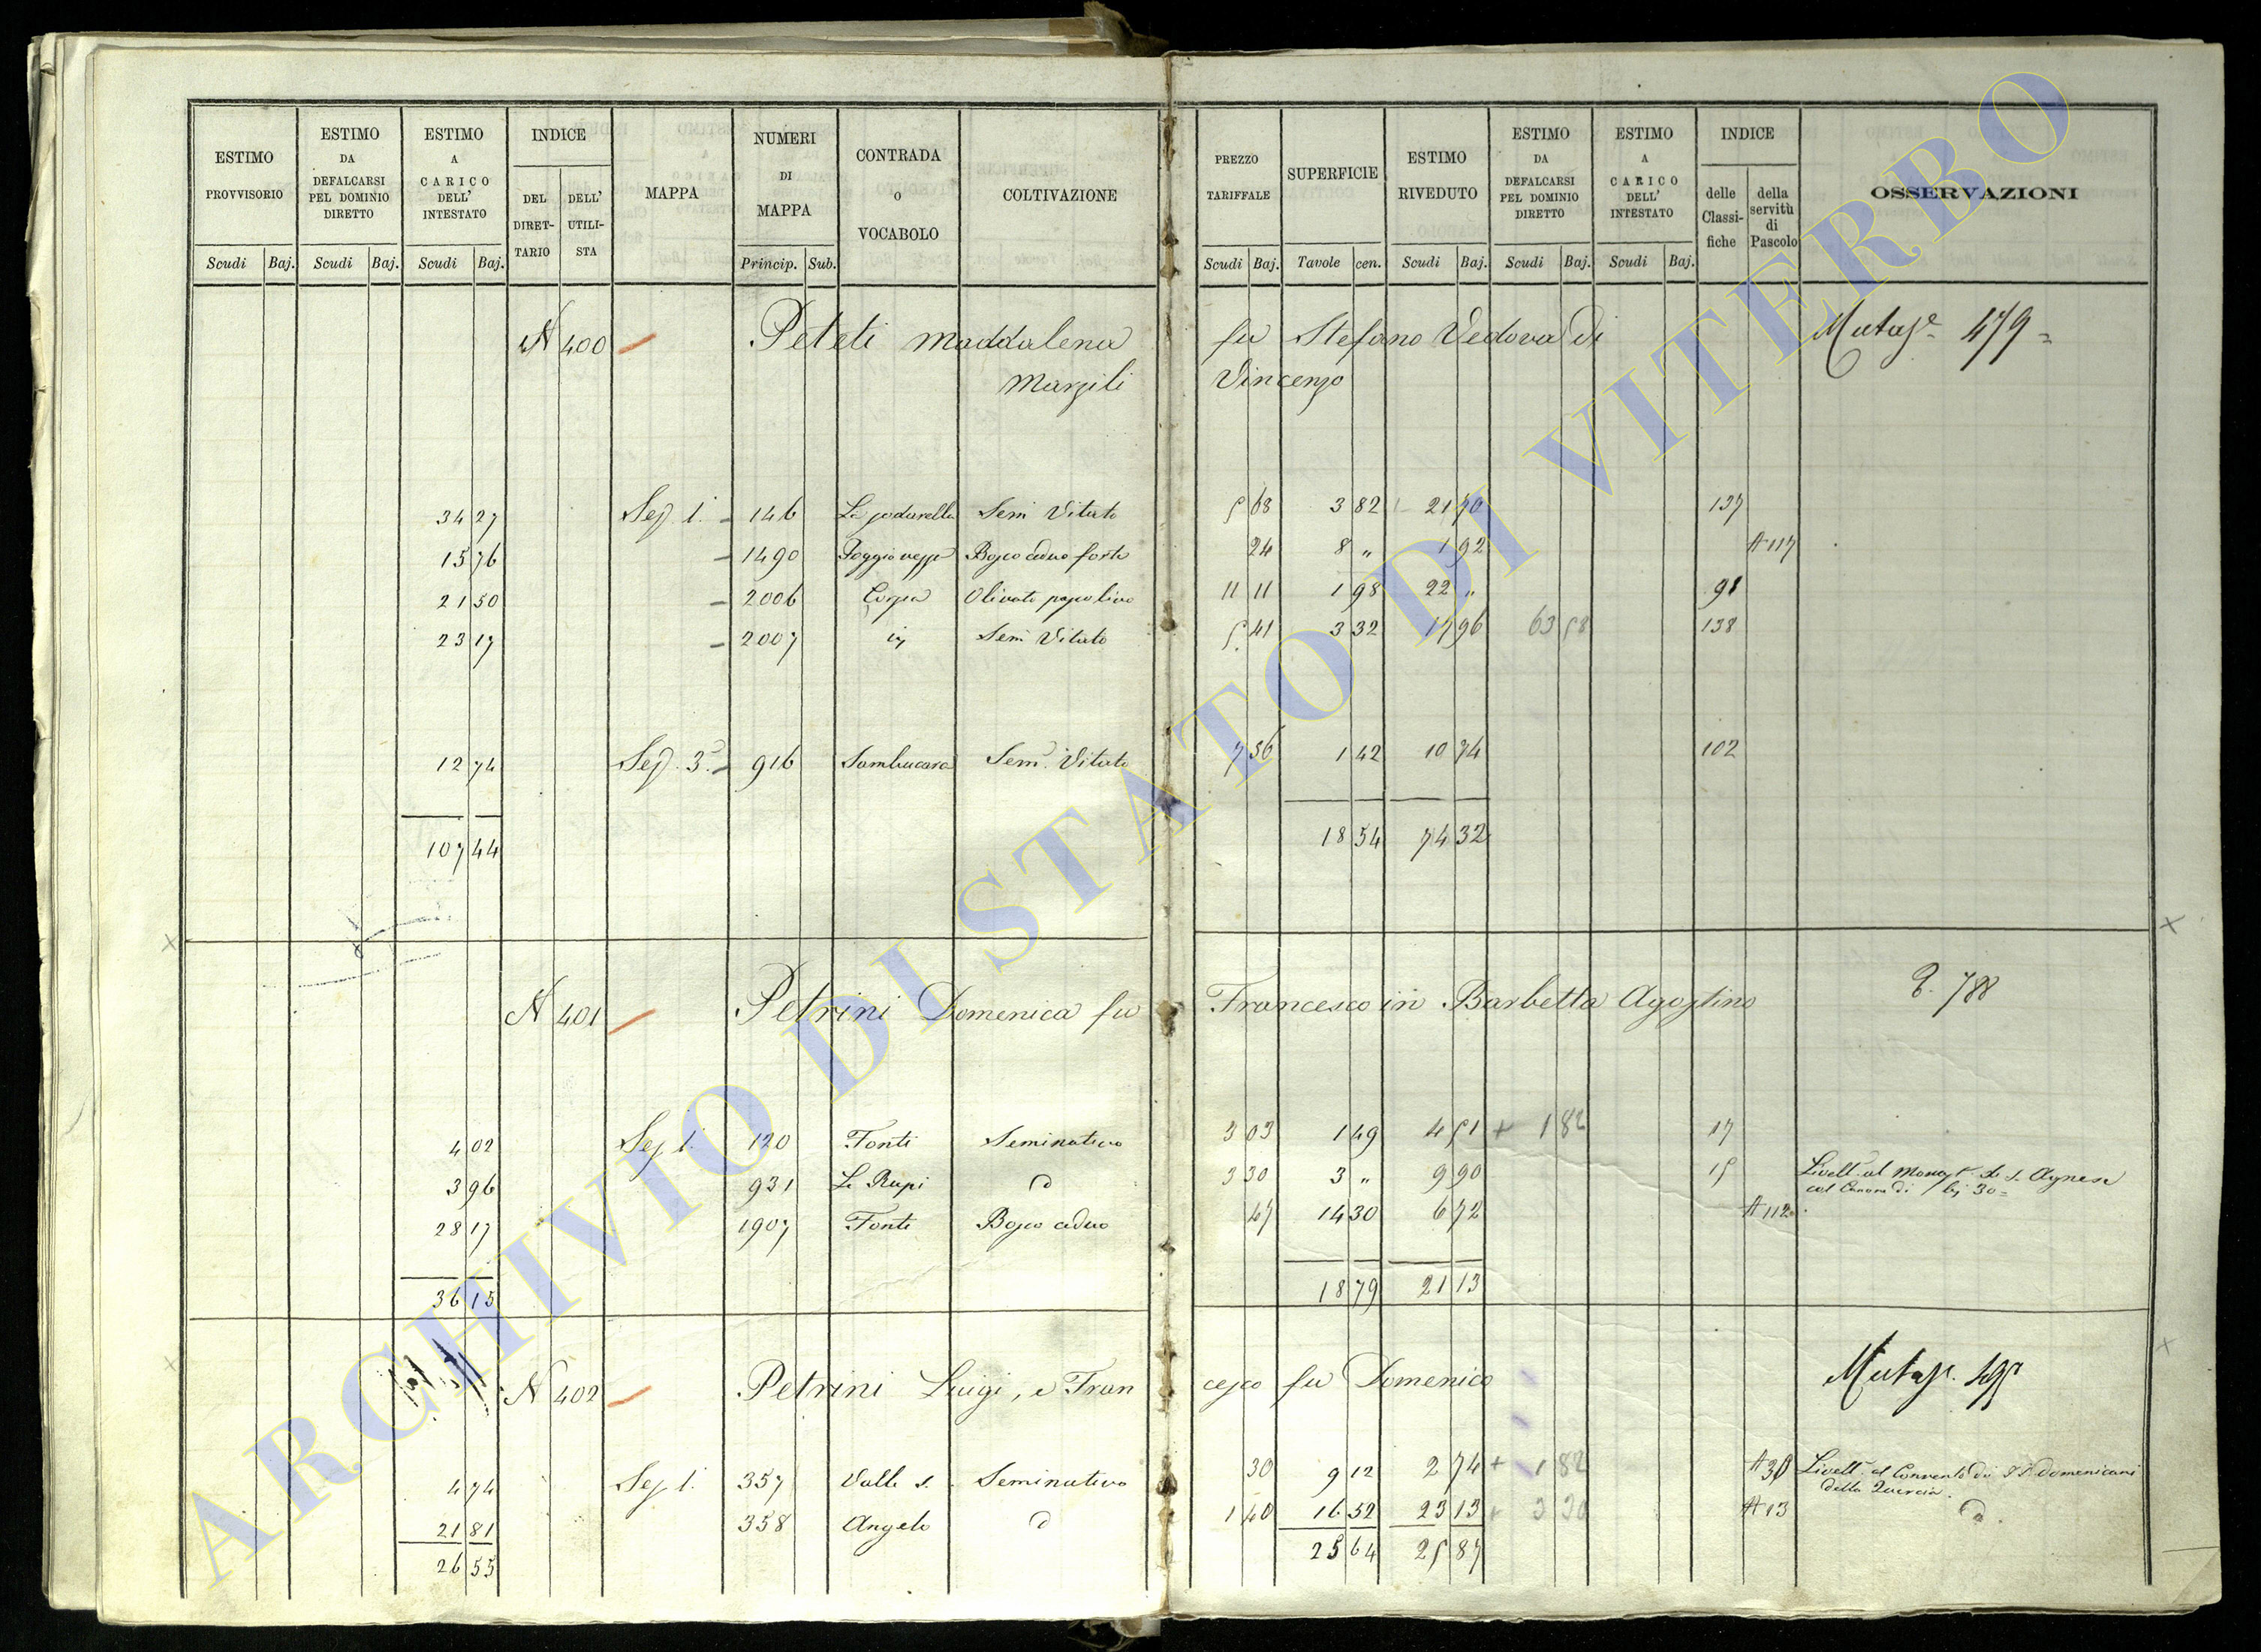 ESTIMO PROVVISORIO | ESTIMO DA DEFALCARSI PEL DOMINIO DIRETTO | ESTIMO A CARICO DELL' INTESTATO | INDICE | MAPPA | NUMERI DI MAPPA | CONTRADA O VOCABOLO | COLTIVAZIONE | PREZZO TARIFFALE | SUPERFICIE | ESTIMO RIVEDUTO | ESTIMO DA DEFALCARSI PEL DOMINIO DIRETTO | ESTIMO A CARICO DELL' INTESTATO | INDICE | OSSERVAZIONI
DEL DIRET-TARIO | DELL' UTILI-STA | delle Classi-fiche | della servitù di Pascolo
Scudi | Baj. | Scudi | Baj. | Scudi | Baj. | Princip. | Sub. | Scudi | Baj. | Tavole | cen. | Scudi | Baj. | Scudi | Baj. | Scudi | Baj.
N 400 Peteti Maddalena fu Stefano Vedova di Mutaz.e 479
Marzili Vincenzo
34 27 | Sez. 1. | 146 | Semi Vitato | 5 68 | 3 82 | 21 70 | 137
15 76 | 1490 | Bosco ceduo forte | 24 | 8 " | 1 92 | A 117
21 50 | 2006 | Olivato | 11 11 | 1 98 | 22 " | 98
23 17 | 2007 | Sem Vitato | 5 41 | 3 32 | 17 96 | 63 58 | 138
12 74 | Sez. 3. | 916 | Sambucara | Sem. Vitato | 7 56 | 1 42 | 10 74 | 102
107 44 | 18 54 | 74 32
N 401 Petrini Domenica fu Francesco in Barbetta Agostino 788
4 02 | Sez 1. | 120 | Fonti | Seminativo | 3 03 | 1 49 | 4 51 | + 1 82 | 17
3 96 | 931 | Le Rupi | d | 3 30 | 3 " | 9 90 | 15 | Livell. al Monast. di S. Agnese
col Canone di bj 30
28 17 | 1907 | Fonti | Bosco ceduo | 47 | 14 30 | 6 72 | A 112
36 15 | 18 79 | 21 13
N 402 Petrini Luigi, e Francesco fu Domenico Mutaz.
4 74 | Sez 1. | 357 | Valle S. | Seminativo | 30 | 9 12 | 2 74 | + 1 82 | Livell. al Convento dei PP. Domenicani
della Quercia
21 81 | 358 | Angelo | d | 1 40 | 16 52 | 23 13 | + 3 30 | A 13 | d
26 55 | 25 64 | 25 87
ARCHIVIO DI STATO DI VITERBO